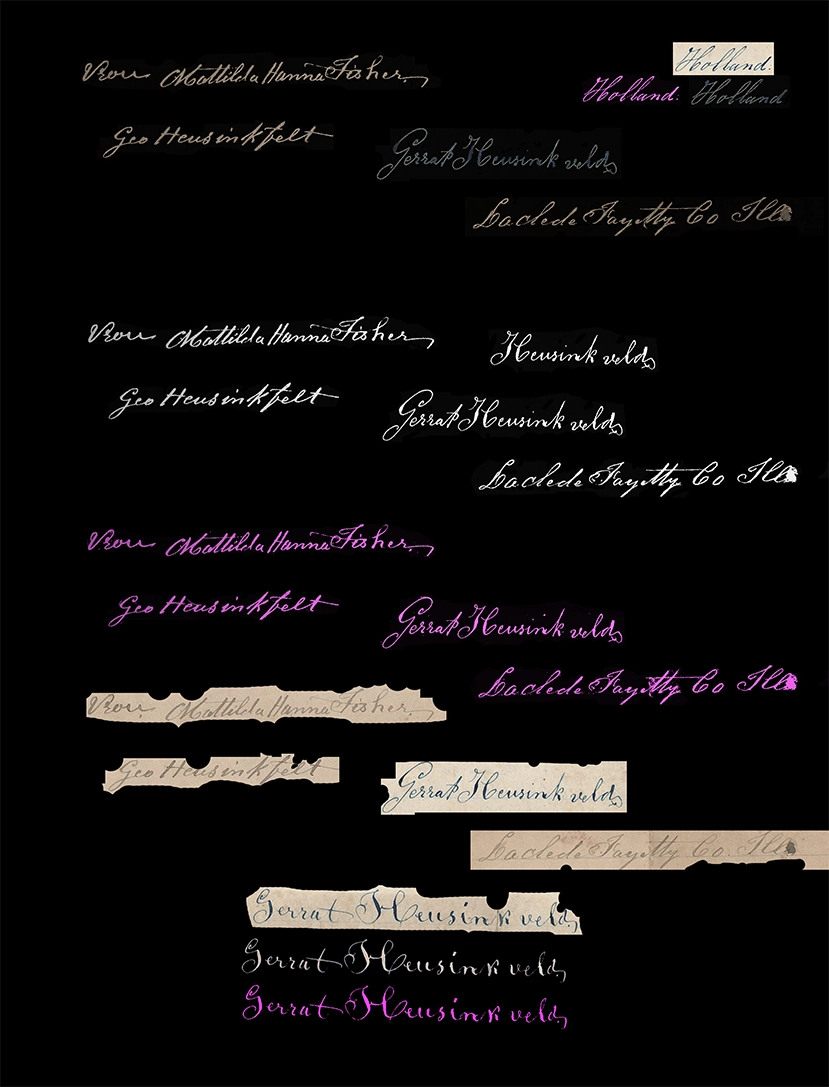 Vrou Mattilda Hanna Fisher
Holland.
Holland. Holland
Geo Heusinkfelt
Gerrat Heusink veld,
Laclede Fayetty Co Ills
Vrou Mattilda Hanna Fisher
Heusink veld,
Geo Heusinkfelt
Gerrat Heusink veld,
Laclede Fayetty Co Ills
Vrou Mattilda Hanna Fisher
Geo Heusinkfelt
Gerrat Heusink veld,
Laclede Fayetty Co Ills
Vrou. Mattilda Hanna Fisher.
Geo Heusinkfelt
Gerrat Heusink veld,
Laclede Fayetty Co. Ills
Gerrat Heusink veld,
Gerrat Heusink veld,
Gerrat Heusink veld,